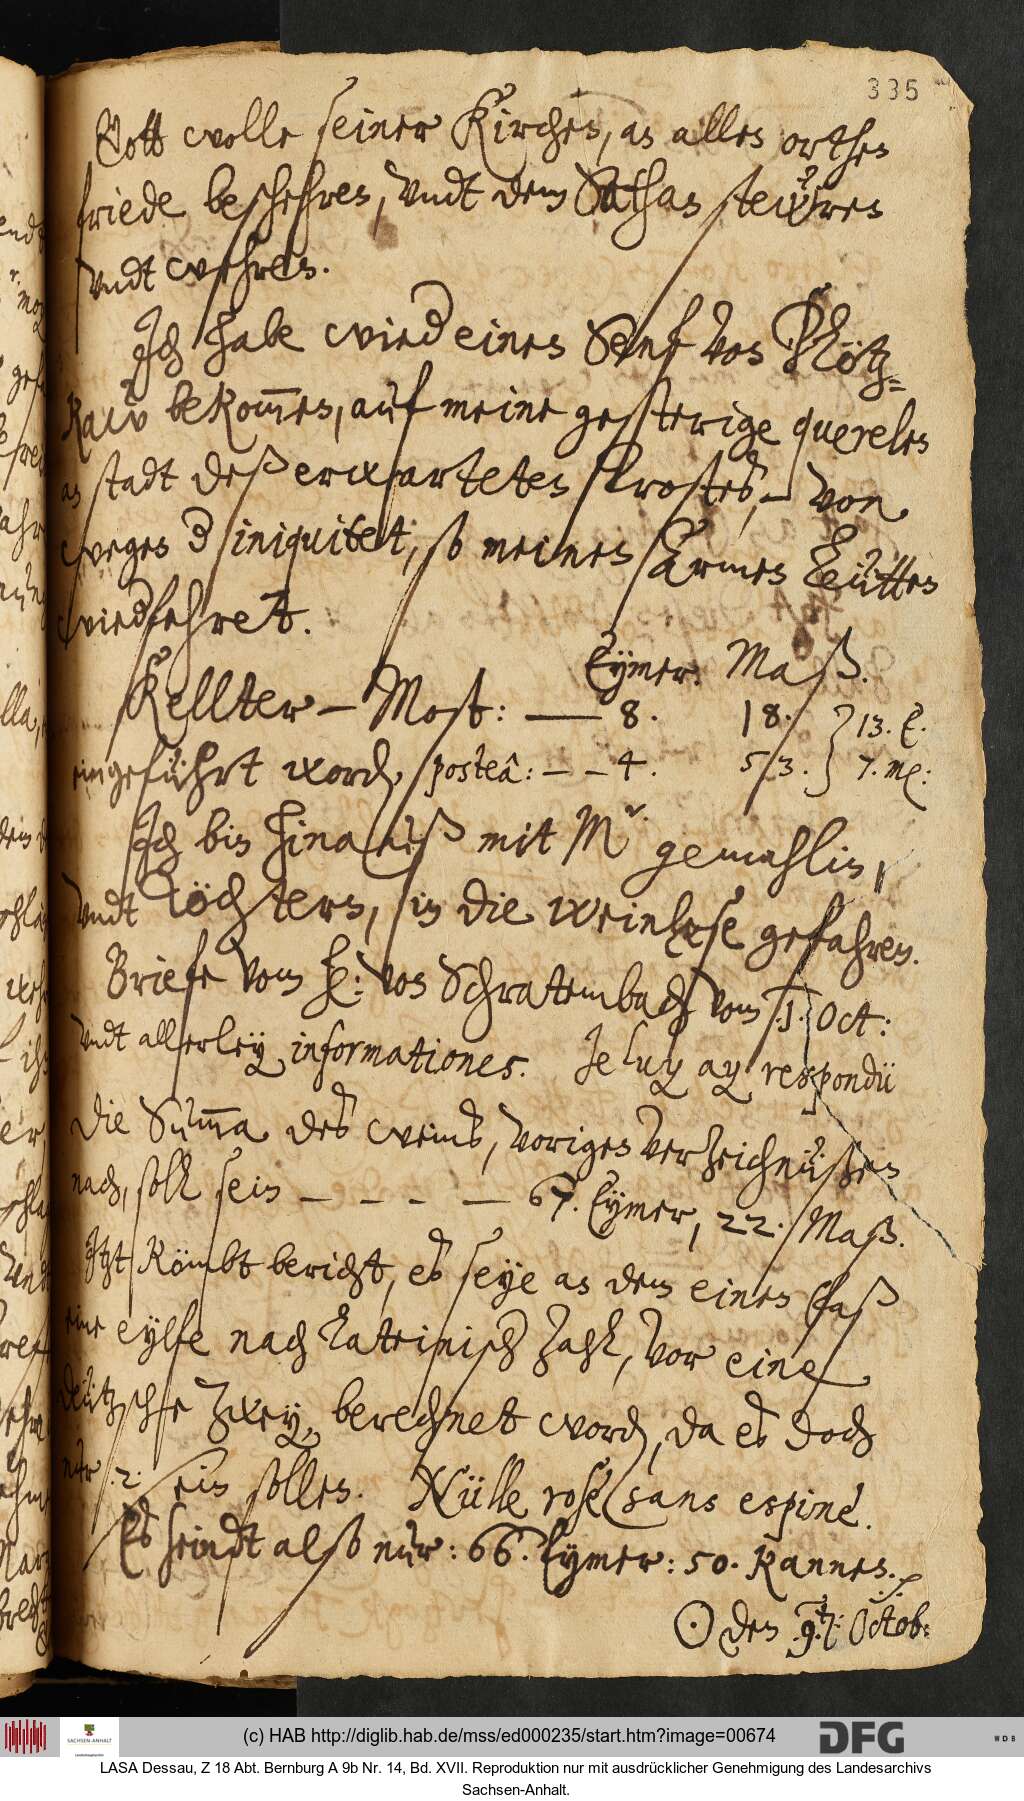 335
Gott wolle seiner Kirchen, an allen orthen
friede beschehren, undt dem Sathan stewren
undt wehren.
Ich habe wied einen Senf von Plötz=
kaw bekommen, auf meine gesterige querelen
an stadt deß erwarteten Trostes, – von
wegen d iniquitet, so meinen armen Leütten
wiedfehret.
Eymer. Maß.
Kellter – Most: — 8. 18. } 13. E.
eingeführt word, posteâ: – – 4. 53. } 7. mß:
Ich bin hinauß mit Mr. gemahlin,
undt Töchtern, in die weinlese gefahren.
Briefe vom H: von Schrattembach vom .1. Oct:
undt allerley informationes. Je luy ay respondü
Die Summa des weins, vorigen verzeichnüßen
nach, soll sein – – – – 67. Eymer, 22. Maß.
Itzt kömbt bericht, es seye an dem einen faß
eine eylfe nach Lateinisch zahl, vor eine
deützsche zwey, berechnet word, da es doch
nur .2. sein sollen. Nülle rose sans espine.
Es seindt also nur: 66. Eymer: 50. Kannen. ⁒
☉ den .9. Octob:
(c) HAB http://diglib.hab.de/mss/ed000235/start.htm?image=00674
SACHSEN-ANHALT
DFG
WDB
LASA Dessau, Z 18 Abt. Bernburg A 9b Nr. 14, Bd. XVII. Reproduktion nur mit ausdrücklicher Genehmigung des Landesarchivs
Sachsen-Anhalt.